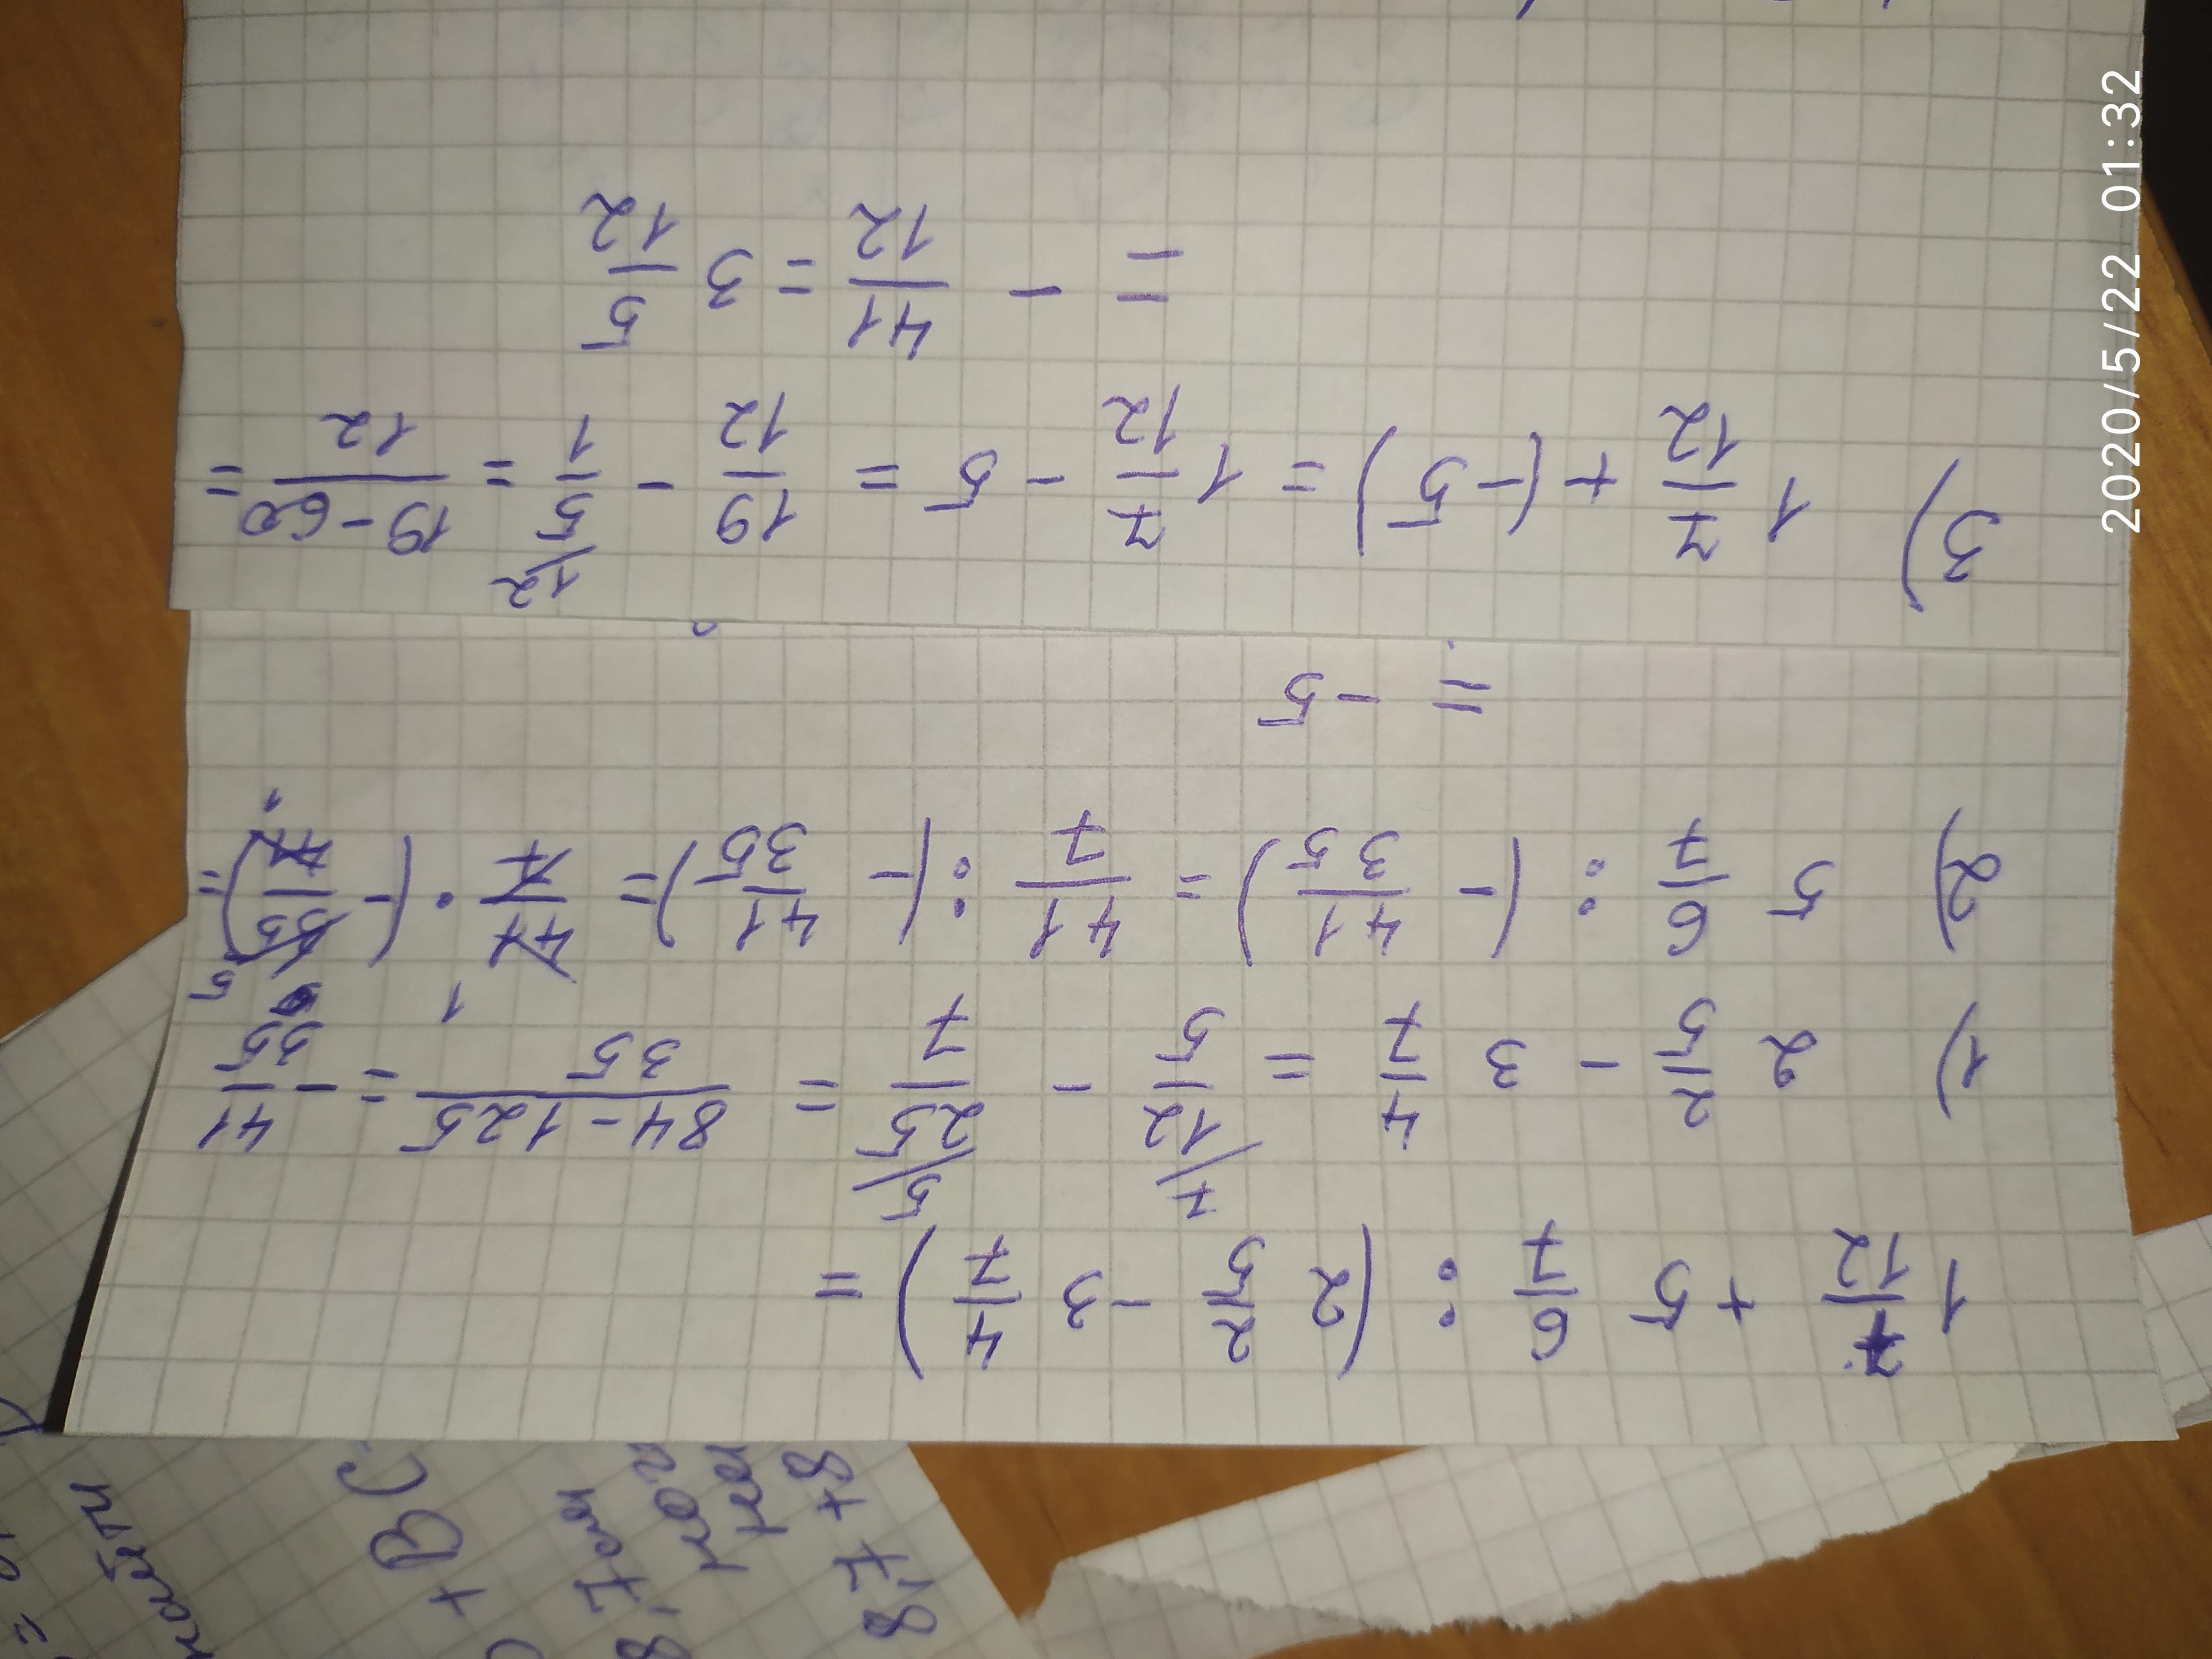 1 7/12 + 5 6/7 : (2 2/5 - 3 4/7) =
1) 2 2/5 - 3 4/7 = 12/5 - 25/7 = (84-125)/35 = -41/35
2) 5 6/7 : (-41/35) = 41/7 : (-41/35) = 41/7 · (-35/41) =
= -5
3) 1 7/12 + (-5) = 1 7/12 - 5 = 19/12 - 5/1 = (19-60)/12 =
= - 41/12 = 3 5/12
2020/5/22 01:32
8,7 + 8
8,7 см
+ ВС
найти